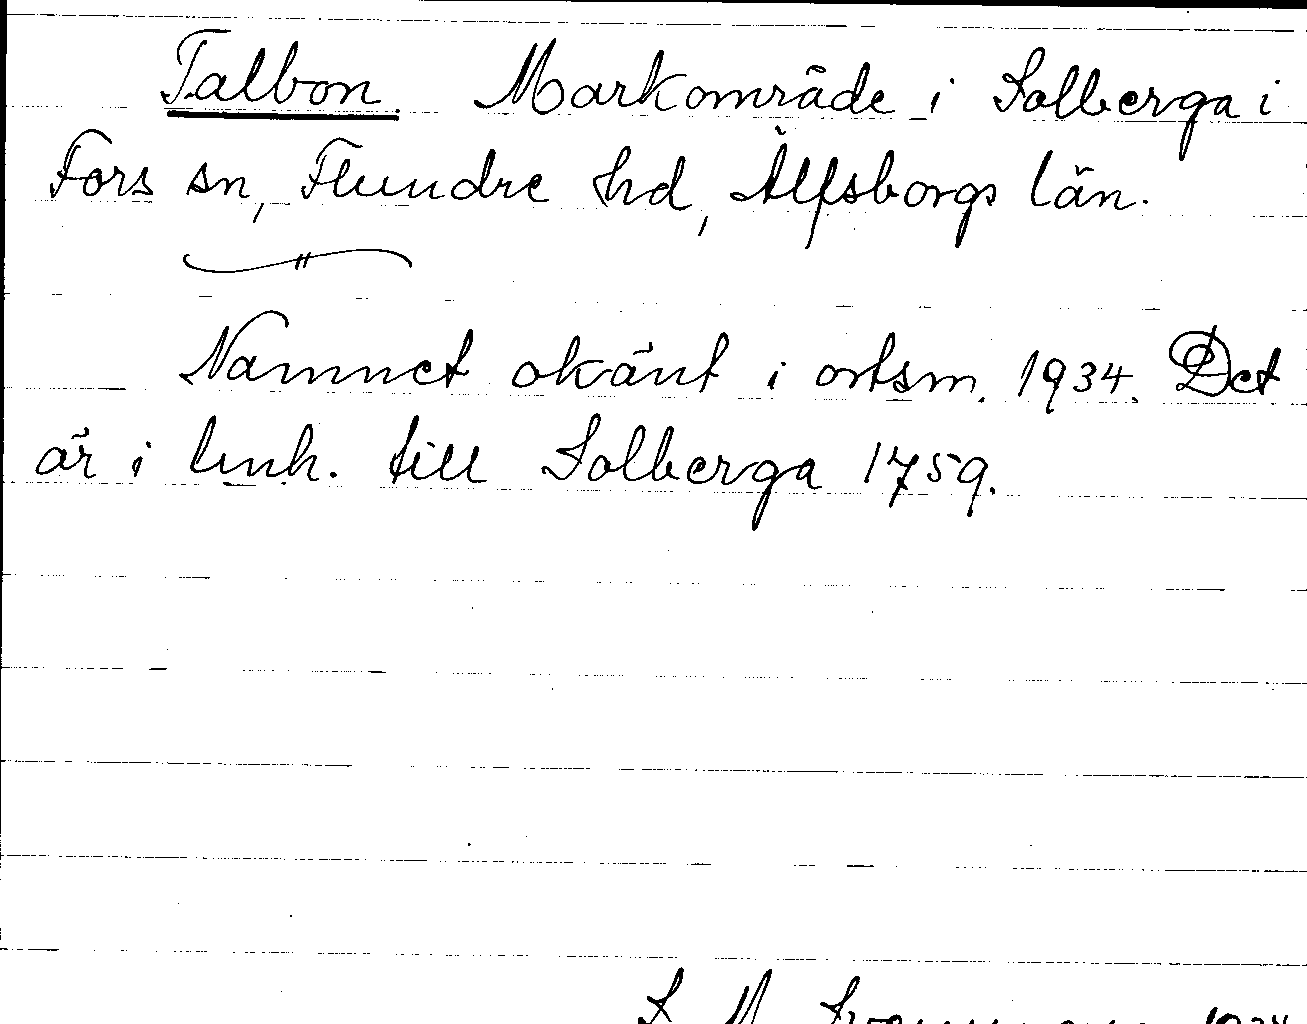 Talbon. Markområde i Solberga i
Fors sn, Flundre hd, Älfsborgs län.
Namnet okänt i ortsm. 1934. Det
är i lmh. till Solberga 1759.